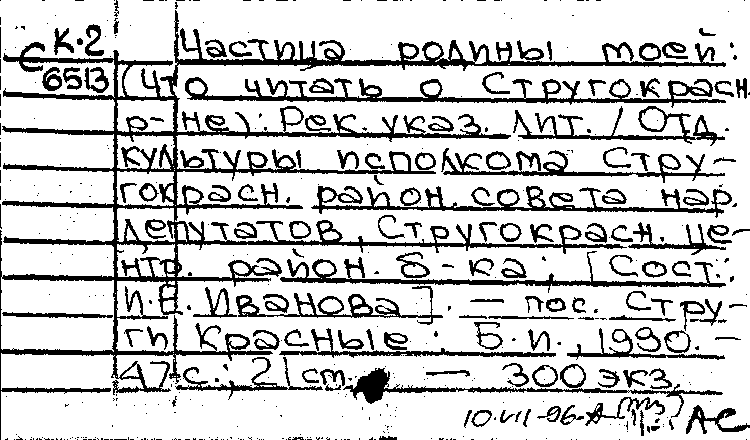 К·2 Частица родины моей:
С 6513 (Что читать о Стругокрасн.
р-не): Рек. указ. лит. / Отд.
культуры исполкома Стру-
гокрасн. район. совета нар.
депутатов, Стругокрасн. це-
нтр. район. б-ка; [Сост.:
И.Е. Иванова]. — пос. Стру-
ги Красные: Б.и., 1990. —
47 с.; 21 cm. — 300 экз.
10·VII-96